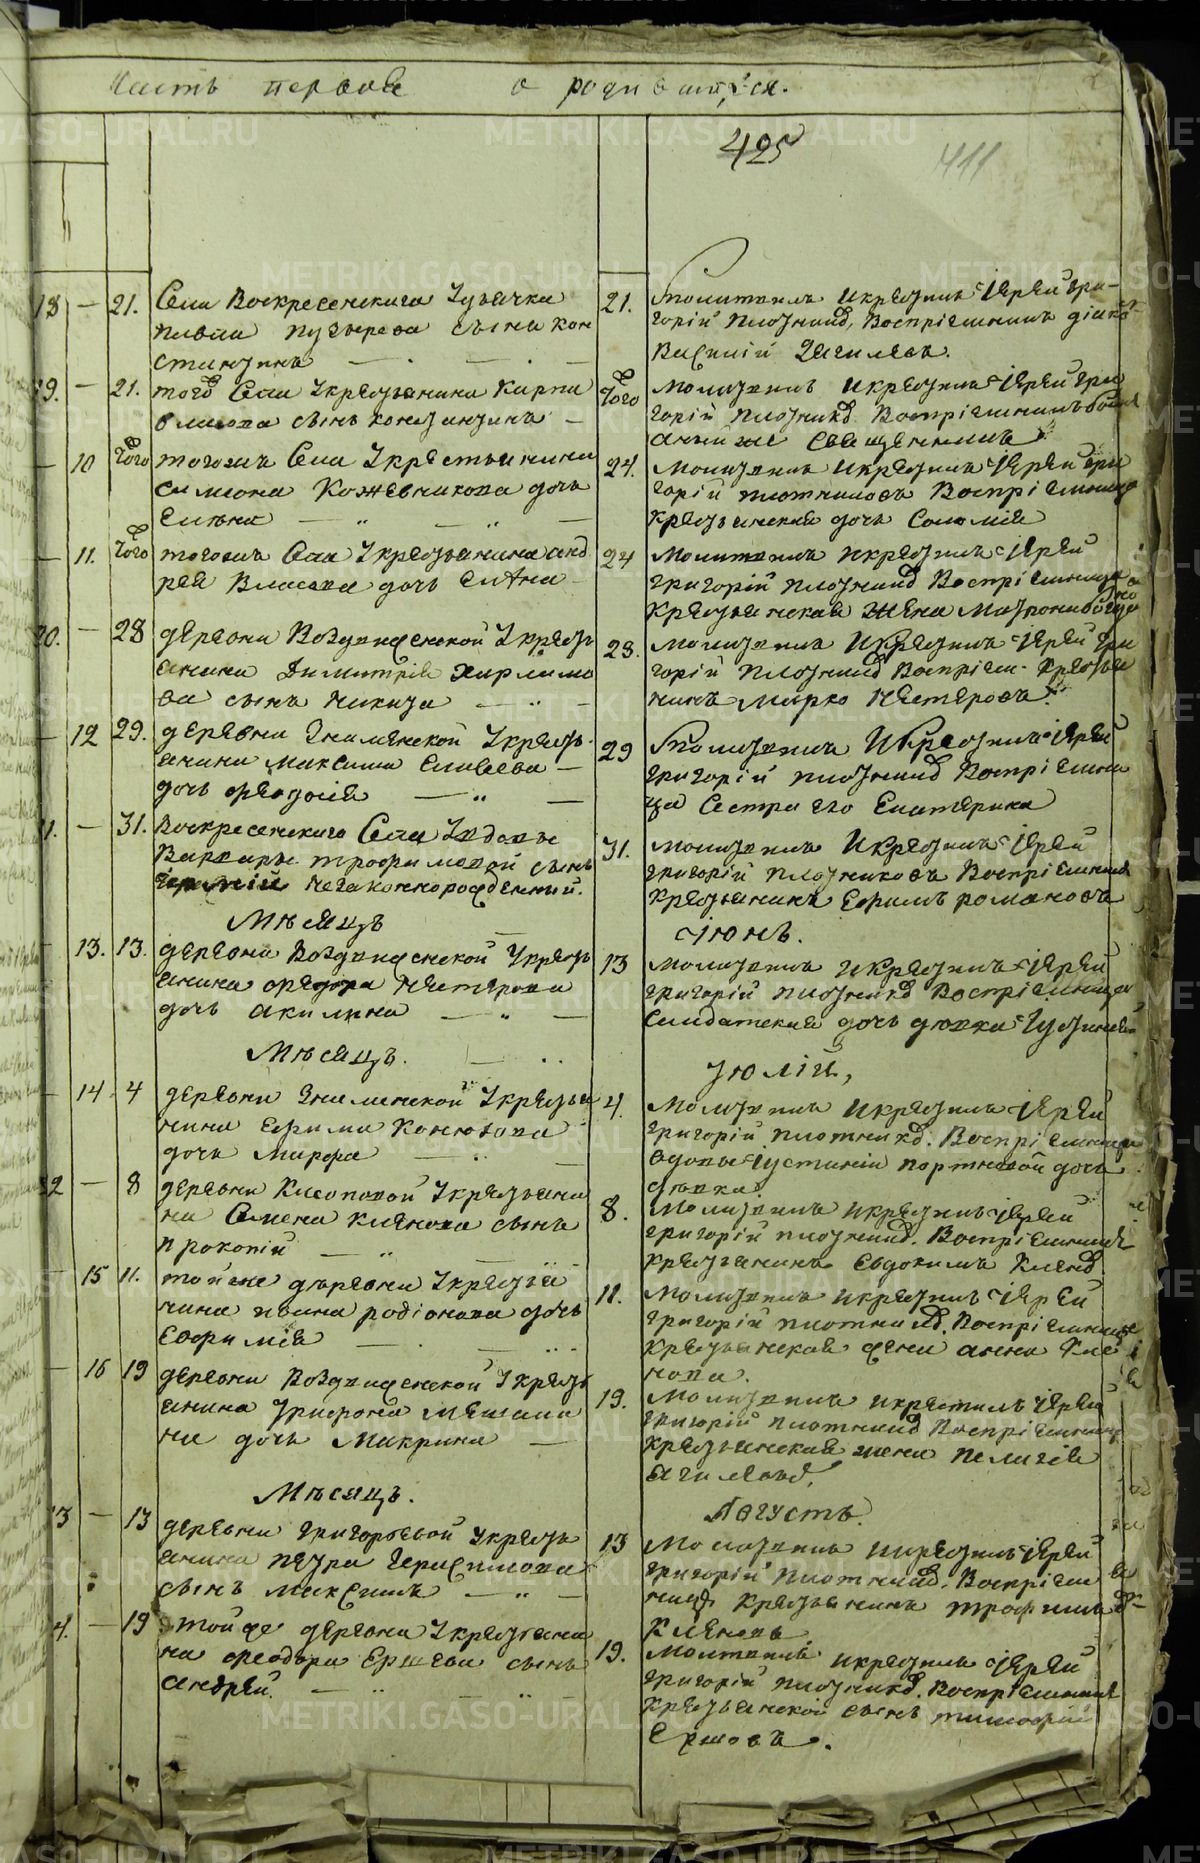 Часть первая о родившихся.
425
411
18 — 21. Села Воскресенскаго У дьячка
Павла Пузырева сынъ Кон
стантинъ
21. Молитвилъ и крестилъ Іерей Гри-
горій Плотник, Воспріемникъ діако
Василій
19. — 21. того Села У крестьянина Карпа
Власова сынъ Константинъ —
Того Молитвилъ и крестилъ Іерей Гри
горій Плотник Воспріемникъ
священникъ
— 10 Того тогожъ Села У крестьянина
Симиона Кожевникова дочь
Елена
24. Молитвилъ и крестилъ Іерей Гри
горій Плотниковъ Воспріемница
крестьянская дочь Соломія
— 11. Того тогожъ Села У крестьянина Анд
рея Власова дочь Елена
24 Молитвилъ и крестилъ Іерей
Григорій Плотник Воспріемница
крестьянская жена Матрона
20. — 28 деревни Воздвиженской У кресть
янина Димитрія Харламо
ва сынъ Никита
28. Молитвилъ и крестилъ Іерей Гри
горій Плотник Воспріем. крестья
нинъ Марко Нестеровъ.
— 12 29. деревни Знаменской У кресть
янина Максима Елисеева —
дочь Феодосія
29 Молитвилъ и крестилъ Іерей
Григорій Плотник Воспріемни
ца Сестра его Екатерина
31. Воскресенскаго Села У вдовы
Варвары Трофимовой сынъ
незаконнорожденный.
31. Молитвилъ и крестилъ Іерей
Григорій Плотниковъ Воспріемник
крестьянинъ Ефимъ Романовъ
Мѣсяцъ Іюнь.
13. 13. деревни Воздвиженской У кресть
янина Федора Нестерова
дочь Акилина
13 Молитвилъ и крестилъ Іерей
Григорій Плотник Воспріемница
Солдатская дочь девка Іустинія
Мѣсяцъ. Іюлій,
— 14. 4 деревни Знаменской У крестья
нина Ефима Конюхова
дочь Марфа
4. Молитвилъ и крестилъ Іерей
Григорій Плотник. Воспріемница
вдовы Іустиніи Портновой дочь
девка
22 — 8 деревни У крестьяни
на Семена Кленова сынъ
Прокопій
8. Молитвилъ и крестилъ Іерей
Григорій Плотник. Воспріемник
крестьянинъ Евдокимъ Клено
— 15 11. той же деревни У крестья
нина Ивана Родіонова дочь
Евфимія
11. Молитвилъ и крестилъ Іерей
Григорій Плотник. Воспріемница
крестьянская жена Анна Кле
нова.
— 16 19 деревни Воздвиженской У кресть
янина Трифона
дочь Макрина
19. Молитвилъ и крестилъ Іерей
Григорій Плотник Воспріемниц
крестьянская жена Пелагія
Мѣсяцъ. Августъ.
23 — 13 деревни Григорьевой У кресть
янина Петра Герасимова
сынъ Максимъ
13 Молитвилъ и крестилъ Іерей
Григорій Плотник. Воспріем
никъ крестьянинъ Трофимъ
Кленовъ
24. — 19 Той же деревни У крестьяни
на Феодора Ершева сынъ
Андрей.
19. Молитвилъ и крестилъ Іерей
Григорій Плотник. Воспріемник
крестьянской сынъ Тимофей
Ершовъ.